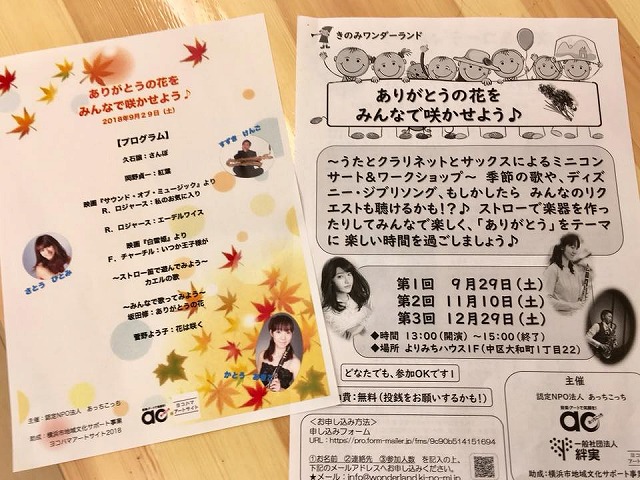 ありがとうの花を
みんなで咲かせよう♪
2018年9月29日(土)
【プログラム】
久石譲：さんぽ
岡野貞一：紅葉
映画『サウンド・オブ・ミュージック』より
R．ロジャース：私のお気に入り
R．ロジャース：エーデルワイス
映画『白雪姫』より
F．チャーチル：いつか王子様が
～ストロー笛で遊んでみよう～
カエルの歌
～みんなで歌ってみよう～
坂田修：ありがとうの花
菅野よう子：花は咲く
すずき けんご
さとう ひとみ
かとう
主催：認定NPO法人 あっちこっち
助成：横浜市地域文化サポート事業
ヨコハマアートサイト2018
ヨコハマ
アートサイト
きのみワンダーランド
ありがとうの花を
みんなで咲かせよう♪
～うたとクラリネットとサックスによるミニコン
サート＆ワークショップ～ 季節の歌や、ディズ
ニー・ジブリソング、もしかしたら みんなのリク
エストも聴けるかも！？♪ ストローで楽器を作っ
たりしてみんなで楽しく、「ありがとう」をテーマ
に 楽しい時間を過ごしましょう♪
第1回 9月29日(土)
第2回 11月10日(土)
第3回 12月29日(土)
◆時間 13:00(開演) ～15:00(終了)
◆場所 よりみちハウス1F(中区大和町1丁目22)
どなたでも、参加OKです！
費：無料（投銭をお願いするかも！）
＜お申し込み方法＞
申し込みフォーム
URL：https://pro.form-mailer.jp/fms/9c90b514151694
①お名前 ②連絡先 ③参加人数 を記入の上、
下記のメールアドレスへお申し込みください。
★メール：info@wonderland.ki-no-mi.jp
主催
認定NPO法人 あっちこっち
一般社団法人
絆実
助成：横浜市地域文化サポート事業